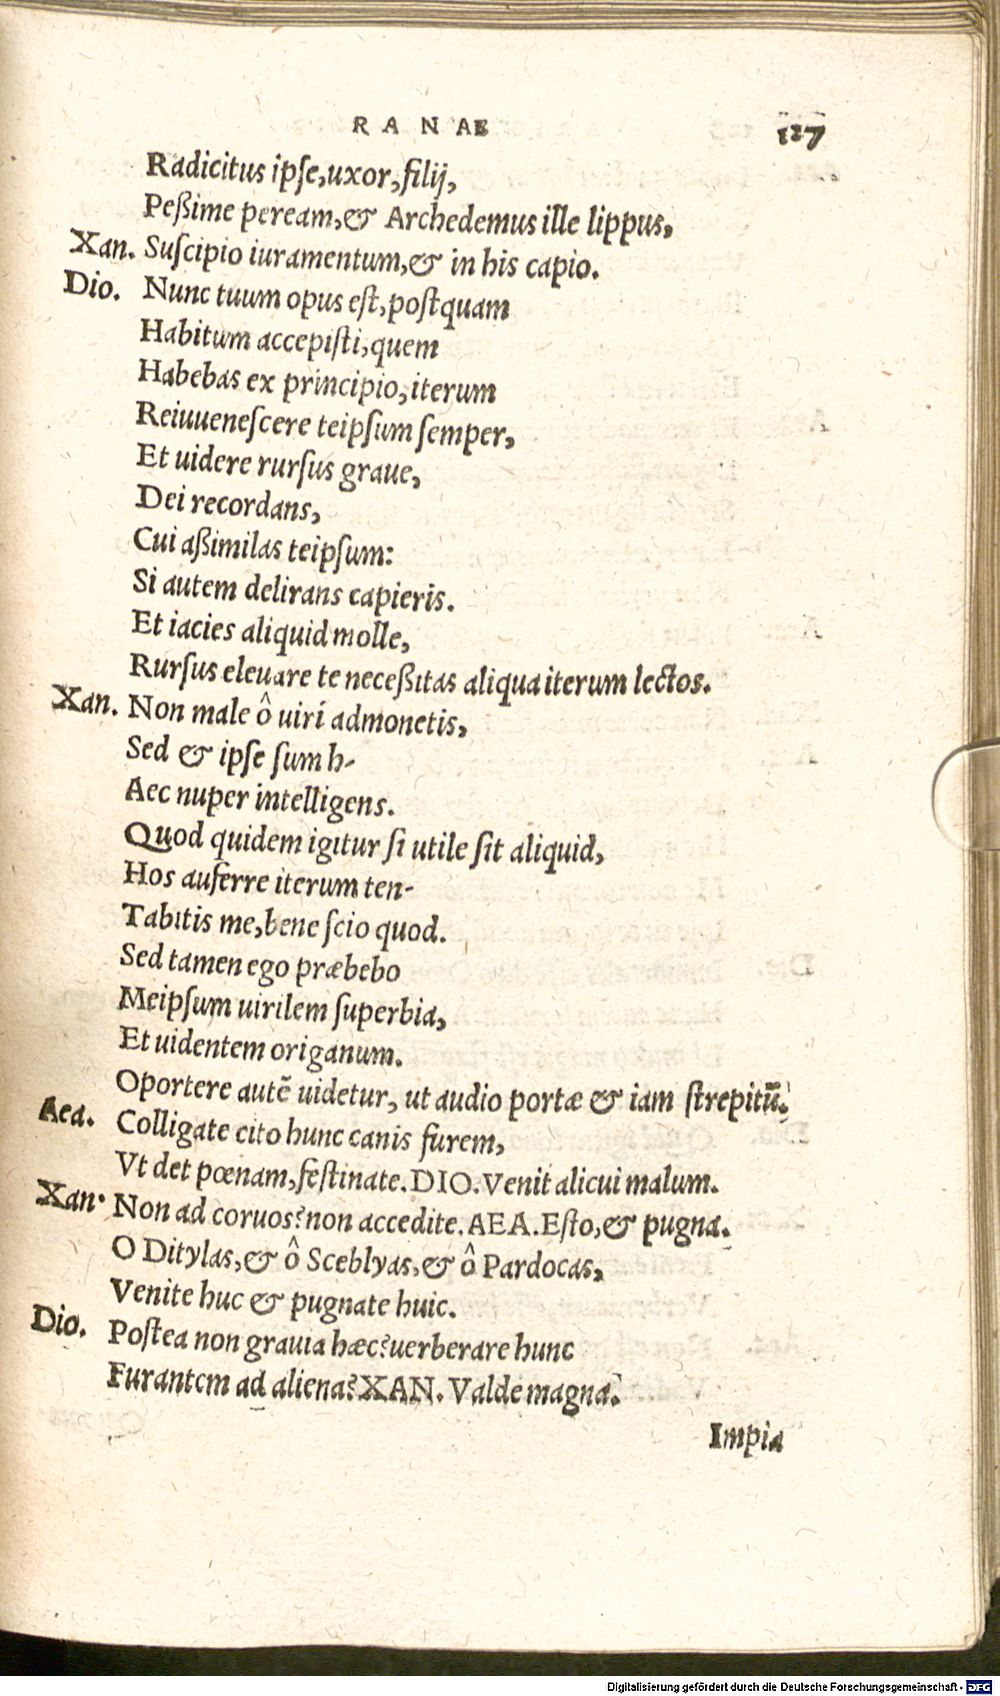 RANAE 127
Radicitus ipſe, uxor, filij,
Peßime peream, & Archedemus ille lippus,
Xan. Suſcipio iuramentum, & in his capio.
Dio. Nunc tuum opus eſt, poſtquam
Habitum accepiſti, quem
Habebas ex principio, iterum
Reiuueneſcere teipſum ſemper,
Et uidere rurſus graue,
Dei recordans,
Cui aßimilas teipſum:
Si autem delirans capieris.
Et iacies aliquid molle,
Rurſus eleuare te neceßitas aliqua iterum lectos.
Xan. Non male ô uiri admonetis,
Sed & ipſe ſum h-
Aec nuper intelligens.
Quod quidem igitur ſi utile ſit aliquid,
Hos auferre iterum ten-
Tabitis me, bene ſcio quod.
Sed tamen ego præbebo
Meipſum uirilem ſuperbia,
Et uidentem origanum.
Oportere autē uidetur, ut audio portæ & iam ſtrepitū.
Aea. Colligate cito hunc canis furem,
Vt det pœnam, feſtinate. DIO. Venit alicui malum.
Xan. Non ad coruos? non accedite. AEA. Eſto, & pugna.
O Ditylas, & ô Sceblyas, & ô Pardocas,
Venite huc & pugnate huic.
Dio. Poſtea non grauia hæc? uerberare hunc
Furantem ad aliena? XAN. Valde magna.
Impia
Digitalisierung gefördert durch die Deutsche Forschungsgemeinschaft - DFG